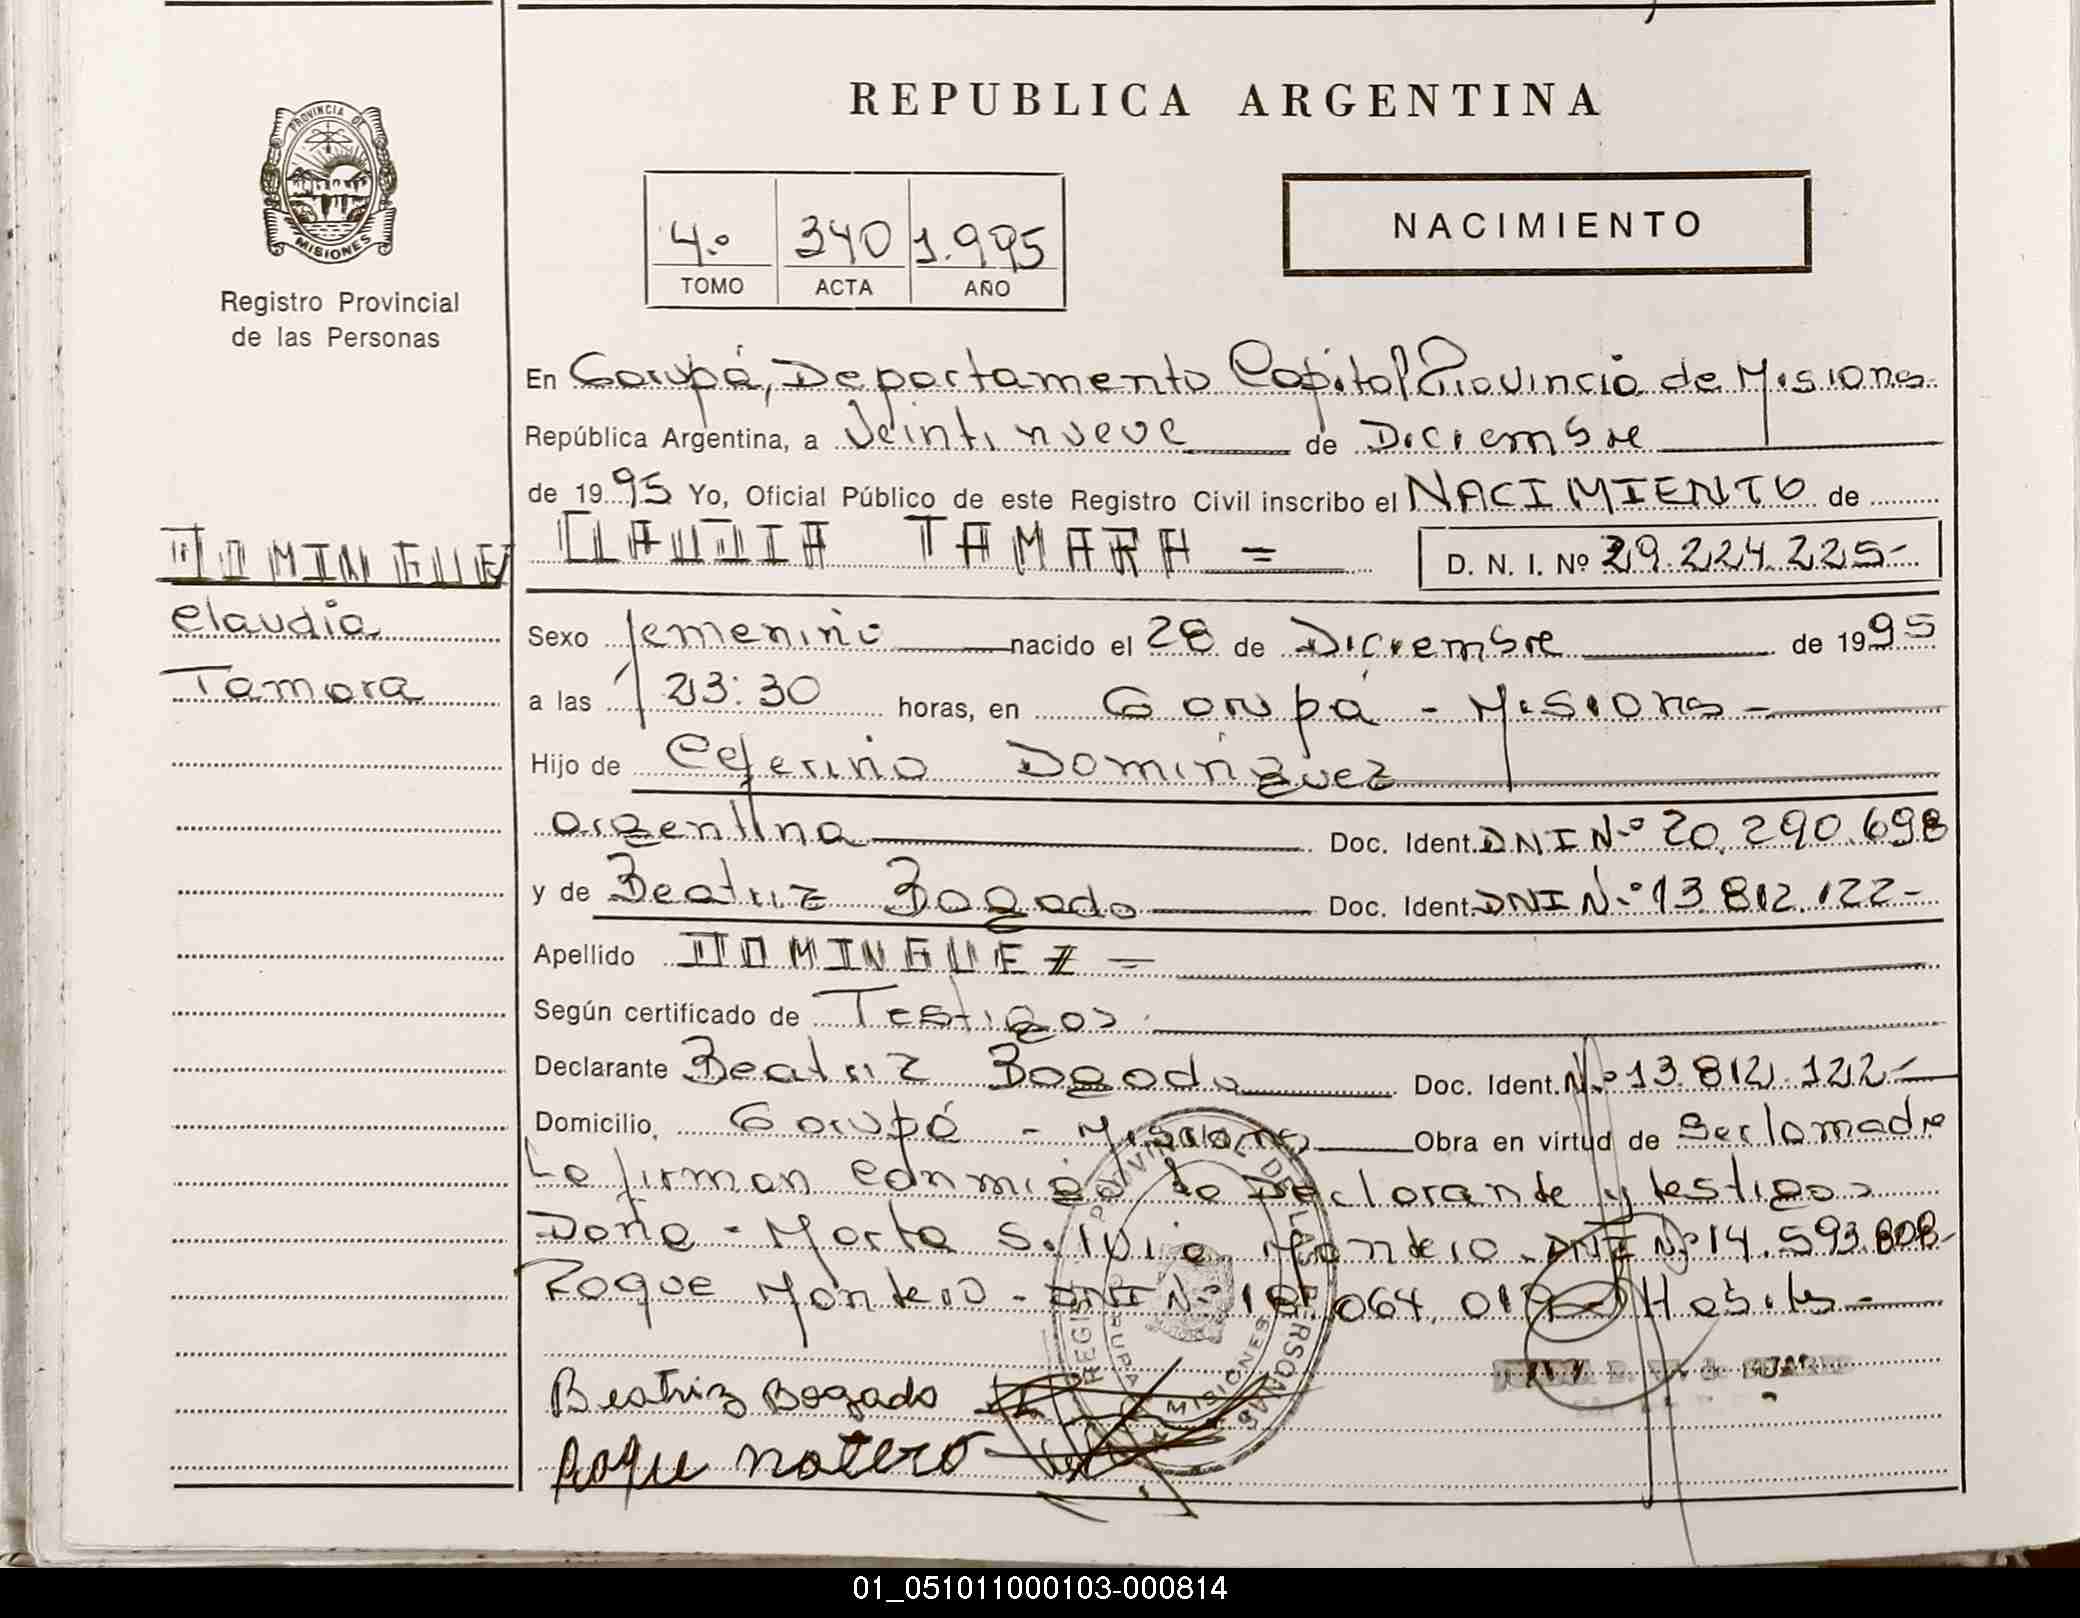 REPUBLICA ARGENTINA
PROVINCIA DE
MISIONES
Registro Provincial
de las Personas
4.º 340 1.995
TOMO ACTA AÑO
NACIMIENTO
En Garupá, Departamento Capital Provincia de Misiones
República Argentina, a Veintinueve de Diciembre
de 1995 Yo, Oficial Público de este Registro Civil inscribo el NACIMIENTO de
DOMINGUEZ
CLAUDIA TAMARA =
D. N. I. Nº 29.224.225-
Claudia
Tamara
Sexo femenino nacido el 28 de Diciembre de 1995
a las 23:30 horas, en Garupá - Misiones -
Hijo de Ceferino Dominguez
argentina Doc. Ident. DNI N.º 20.290.698
y de Beatriz Bogado Doc. Ident. DNI N.º 13.812.122-
Apellido DOMINGUEZ =
Según certificado de Testigos
Declarante Beatriz Bogado Doc. Ident. Nº 13.812.122-
Domicilio, Garupá - Misiones Obra en virtud de Ser la madre
La firman conmigo la Declarante y testigos
Doña - Marta Silvia Montero - DNI Nº 14.593.808-
Roque Montero - DNI N.º 064.01 Habiles -
REGISTRO PROVINCIAL DE LAS PERSONAS
GARUPA MISIONES
Beatriz Bogado
Roque Motero
01_051011000103-000814